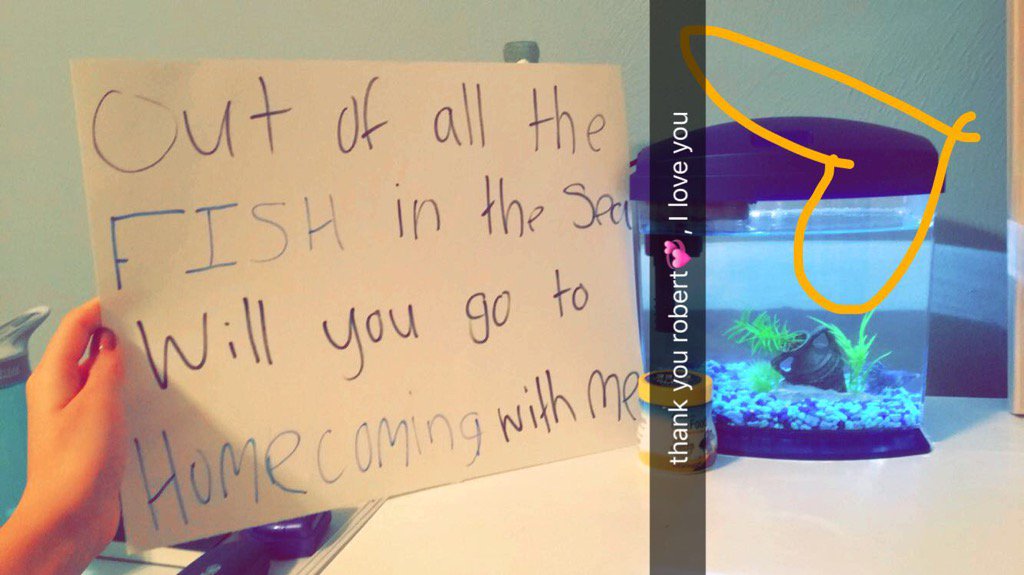 Out of all the
FISH in the Sea
Will you go to
Homecoming with me
thank you robert💞, I love you